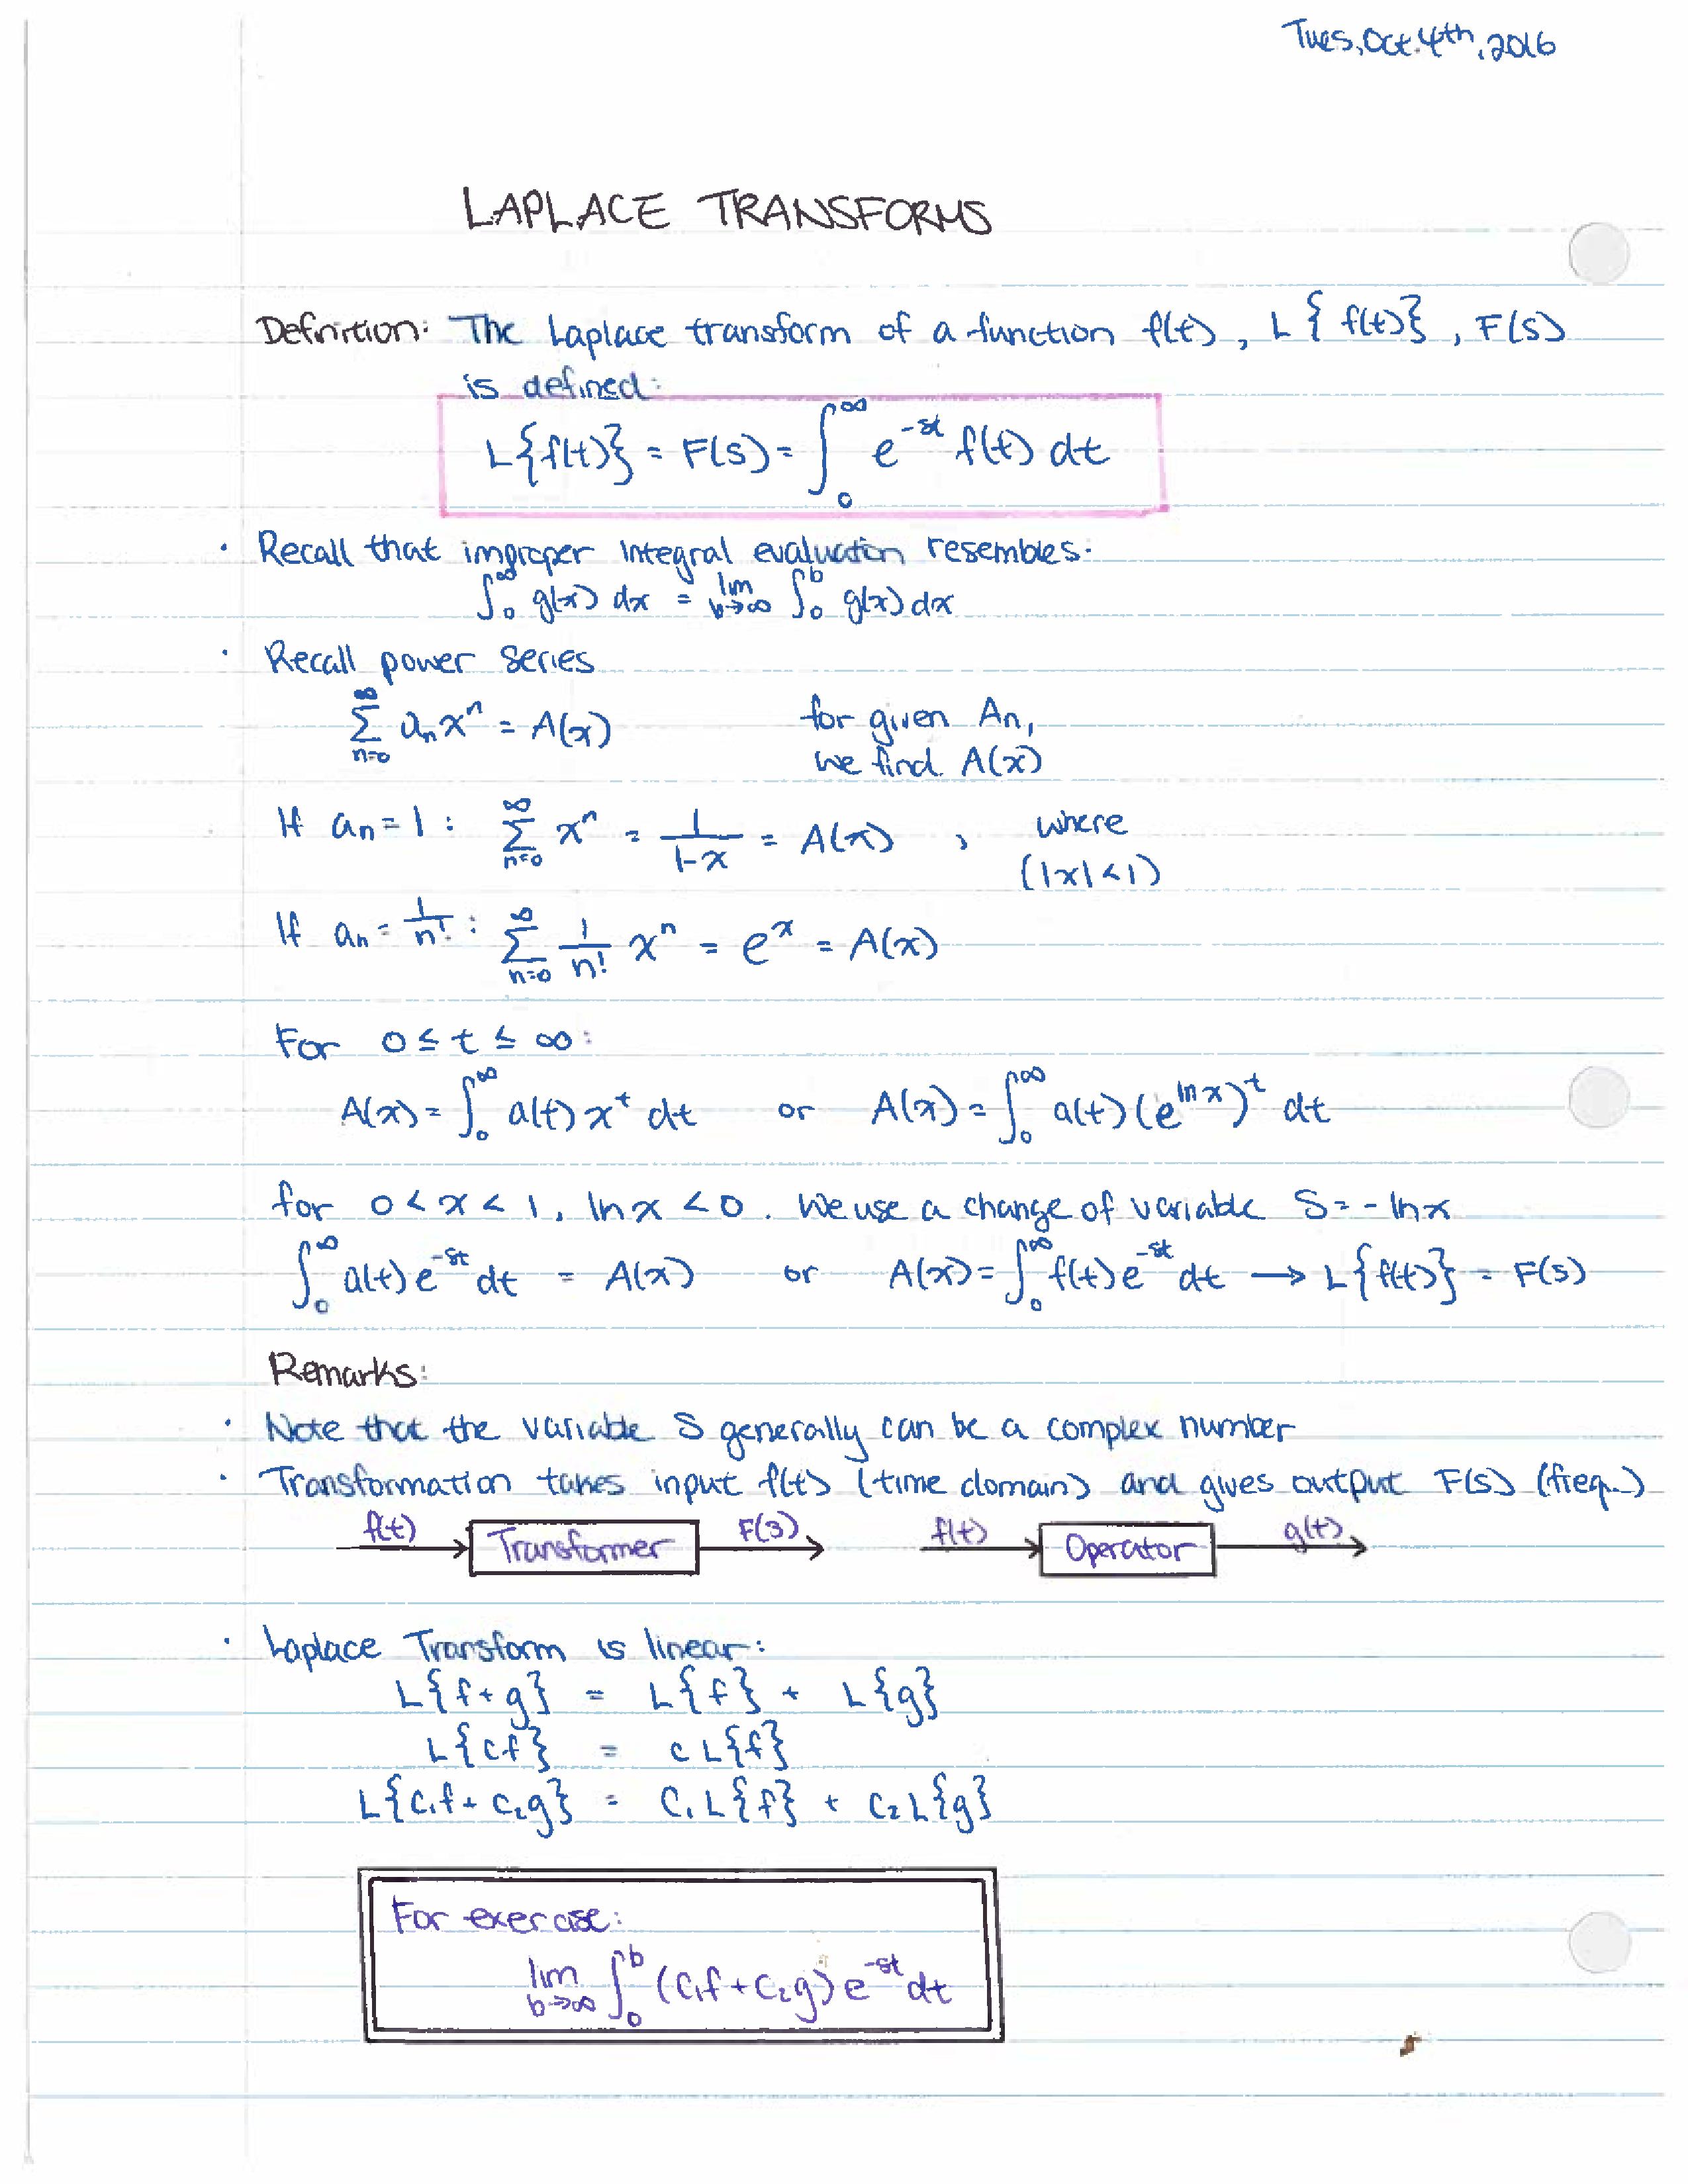 Tues, Oct. 4th, 2016
LAPLACE TRANSFORMS
Definition: The Laplace transform of a function f(t), L{f(t)}, F(s)
is defined:
L{f(t)} = F(s) = ∫₀^∞ e^(-st) f(t) dt
· Recall that improper integral evaluation resembles:
∫₀^∞ g(x) dx = lim b→∞ ∫₀^b g(x) dx
· Recall power series
∑_{n=0}^∞ aₙxⁿ = A(x) for given Aₙ,
we find A(x)
If aₙ = 1 : ∑_{n=0}^∞ xⁿ = 1/(1-x) = A(x) , where
(|x| < 1)
If aₙ = 1/n! : ∑_{n=0}^∞ 1/n! xⁿ = e^x = A(x)
For 0 ≤ t ≤ ∞:
A(x) = ∫₀^∞ a(t) x^t dt or A(x) = ∫₀^∞ a(t) (e^(ln x))^t dt
for 0 < x < 1, ln x < 0. We use a change of variable S = - ln x
∫₀^∞ a(t) e^(-st) dt = A(x) or A(x) = ∫₀^∞ f(t) e^(-st) dt → L{f(t)} = F(s)
Remarks:
· Note that the variable S generally can be a complex number
· Transformation takes input f(t) (time domain) and gives output F(s) (freq.)
f(t) Transformer F(s) f(t) Operator g(t)
· Laplace Transform is linear:
L{f + g} = L{f} + L{g}
L{cf} = c L{f}
L{c₁f + c₂g} = c₁L{f} + c₂L{g}
For exercise:
lim b→∞ ∫₀^b (c₁f + c₂g) e^(-st) dt